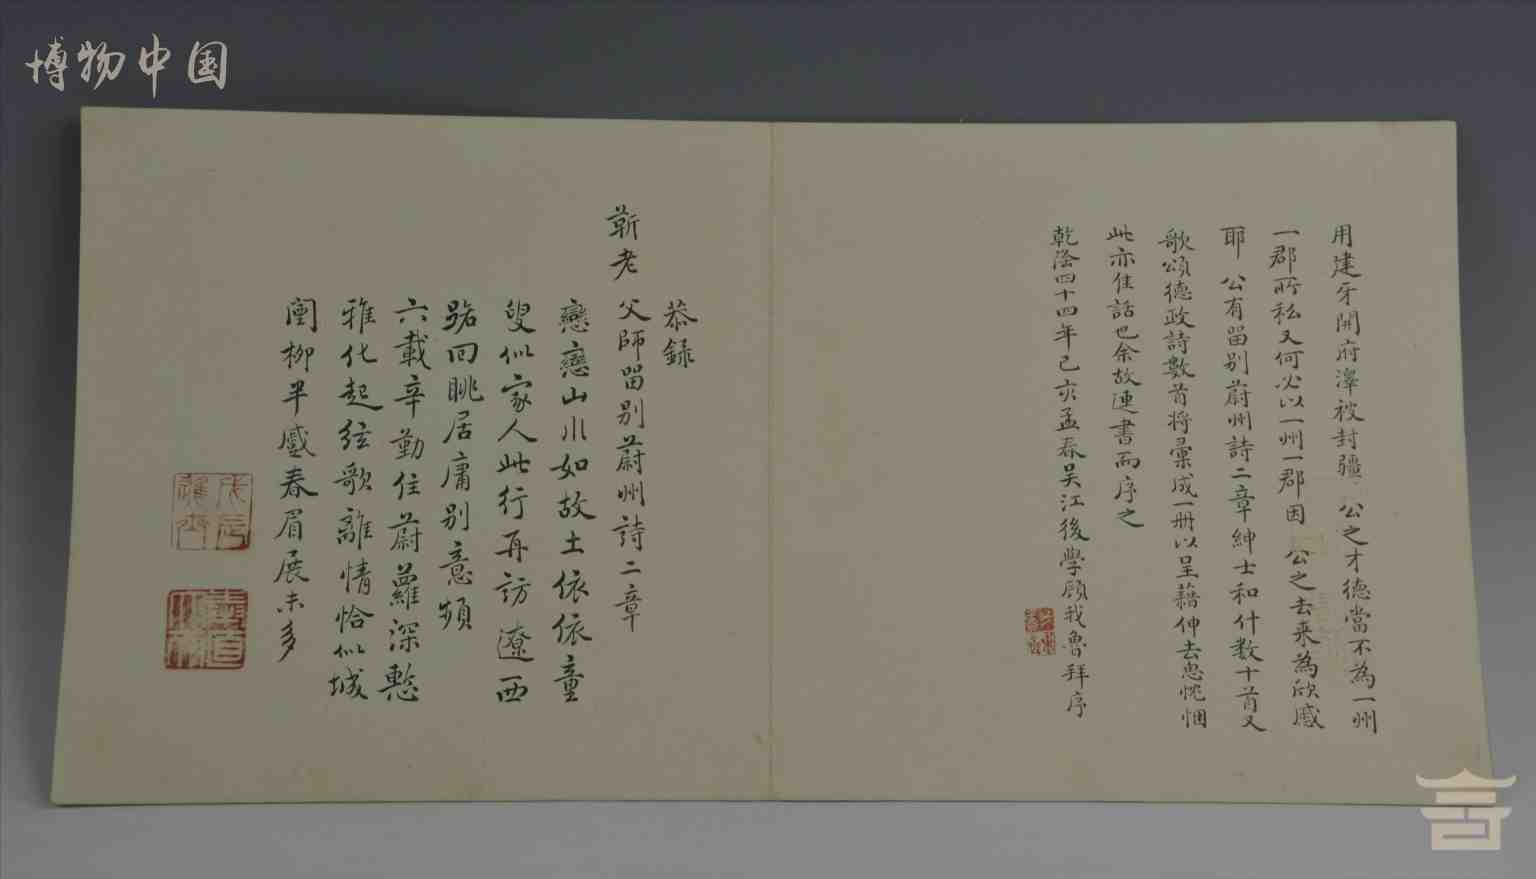 博物中国
用建牙開府澤被封疆公之才德當不為一州
一郡所私又何必以一州一郡因公之去來為欣慼
耶公有留别蔚州詩二章紳士和什数十首又
歌頌德政詩數首將彙成一冊以呈藉伸去思忱悃
此亦佳話也余故連書而序之
乾隆四十四年己亥孟春吴江後學顾我魯拜序
恭録
靳老父師留别蔚州詩二章
戀戀山川如故土依依童
叟似家人此行再訪遼西
路回眺居庸别意頻
六載辛勤住蔚蘿深慙
雅化起絃歌離情恰似城
闉柳半慼春眉展未多